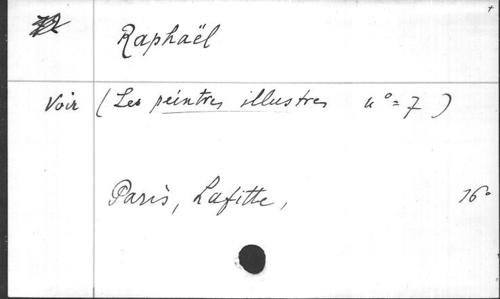 Raphaël
Voir (Les peintres illustres n° = 7)
Paris, Lafitte, 16°